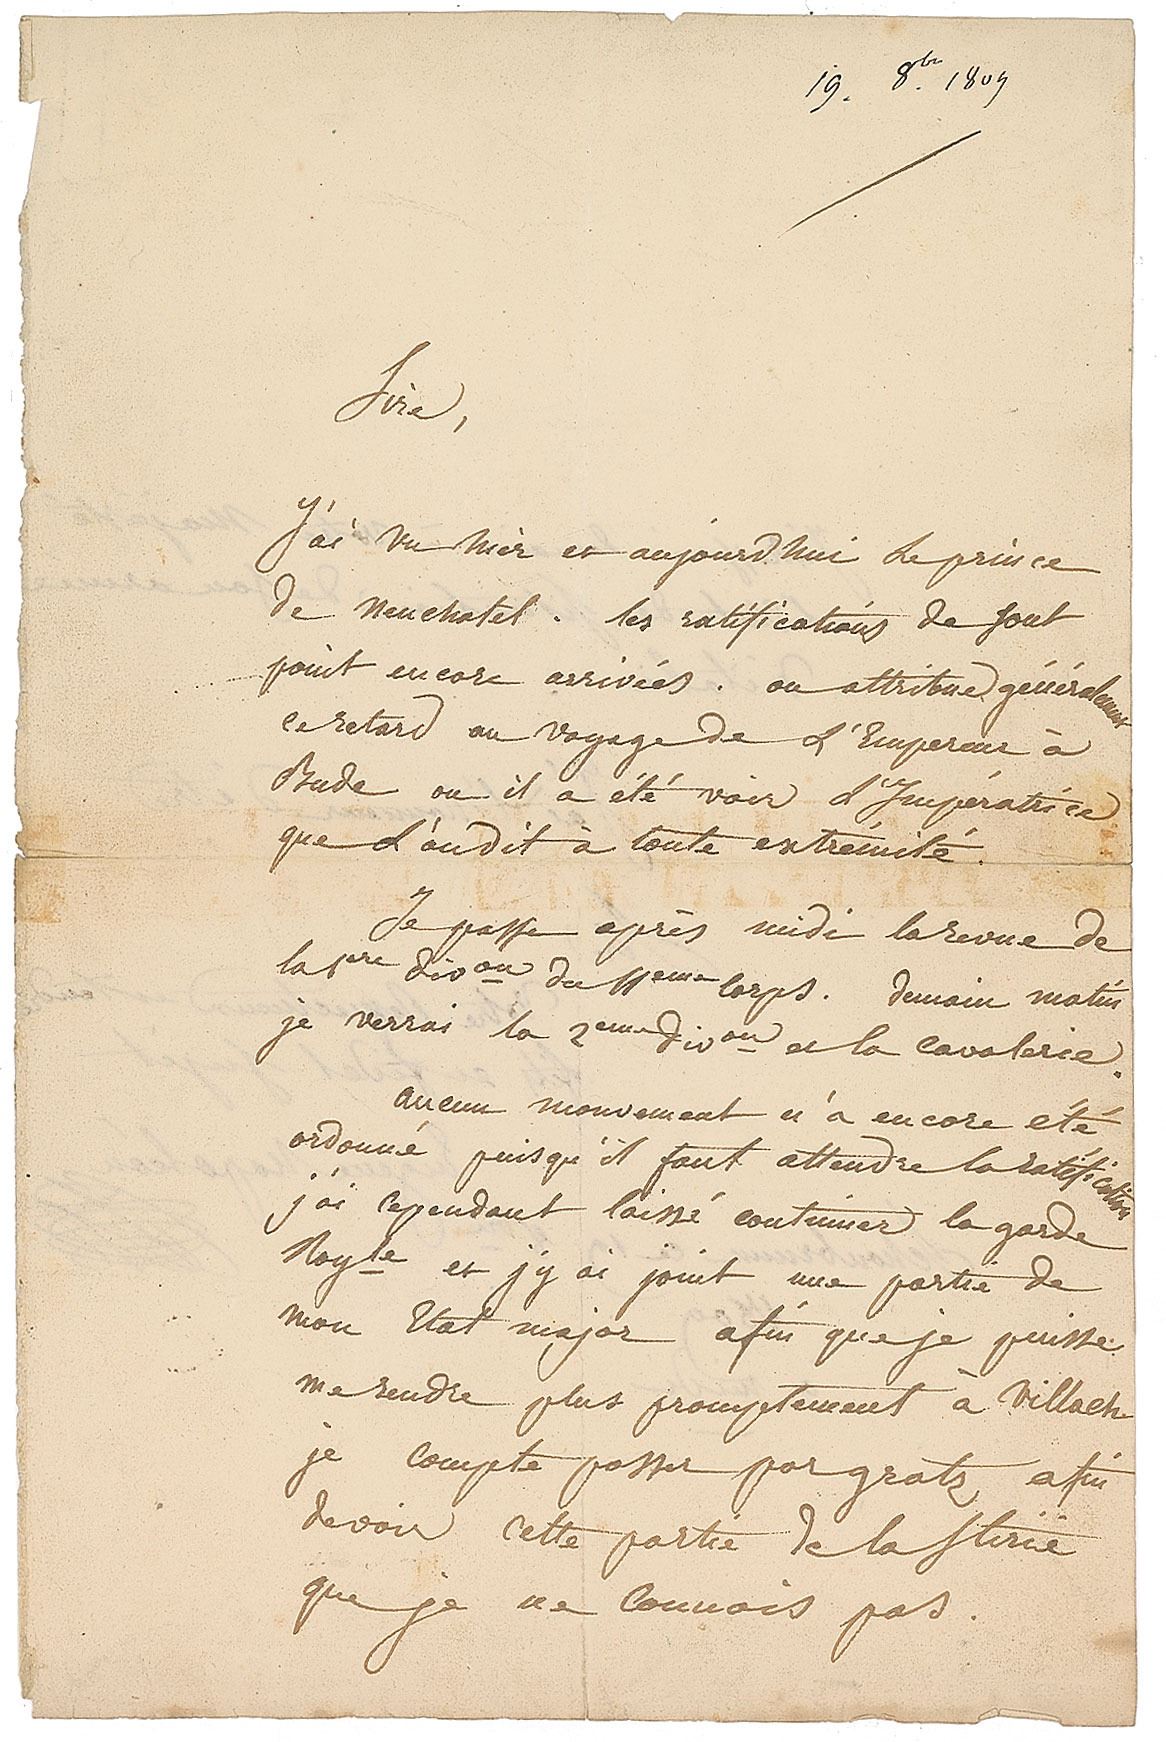 19. 8bre 1809
Sire,
J'ai vu hier et aujourd'hui le prince
de Neuchatel. les ratifications de sont
point encore arrivées. on attribue généralement
ce retard au voyage de L'Empereur à
Bude ou il a été voir L'Impératrice
que L'on dit à toute extrémité.
Je passe après midi la revue de
la 1ere divon du 11eme Corps. demain matin
je verrai la 2eme divon et la Cavalerie.
aucun mouvement n'a encore été
ordonné puisqu'il faut attendre la ratification
j'ai cependant laissé continuer la garde
Royle et j'y ai joint une partie de
mon Etat major afin que je puisse
me rendre plus promptement à Villach
je compte passer par gratz afin
de voir cette partie de la Stirie
que je ne connais pas.